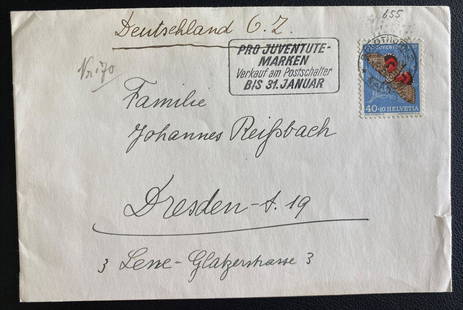 Deutschland O. Z.
655
PRO JUVENTUTE-
MARKEN
Verkauf am Postschalter
BIS 31. JANUAR
40+10 HELVETIA
Familie
Johannes Reißbach
Dresden-A. 19
3 Lene-Glatzerstrasse 3